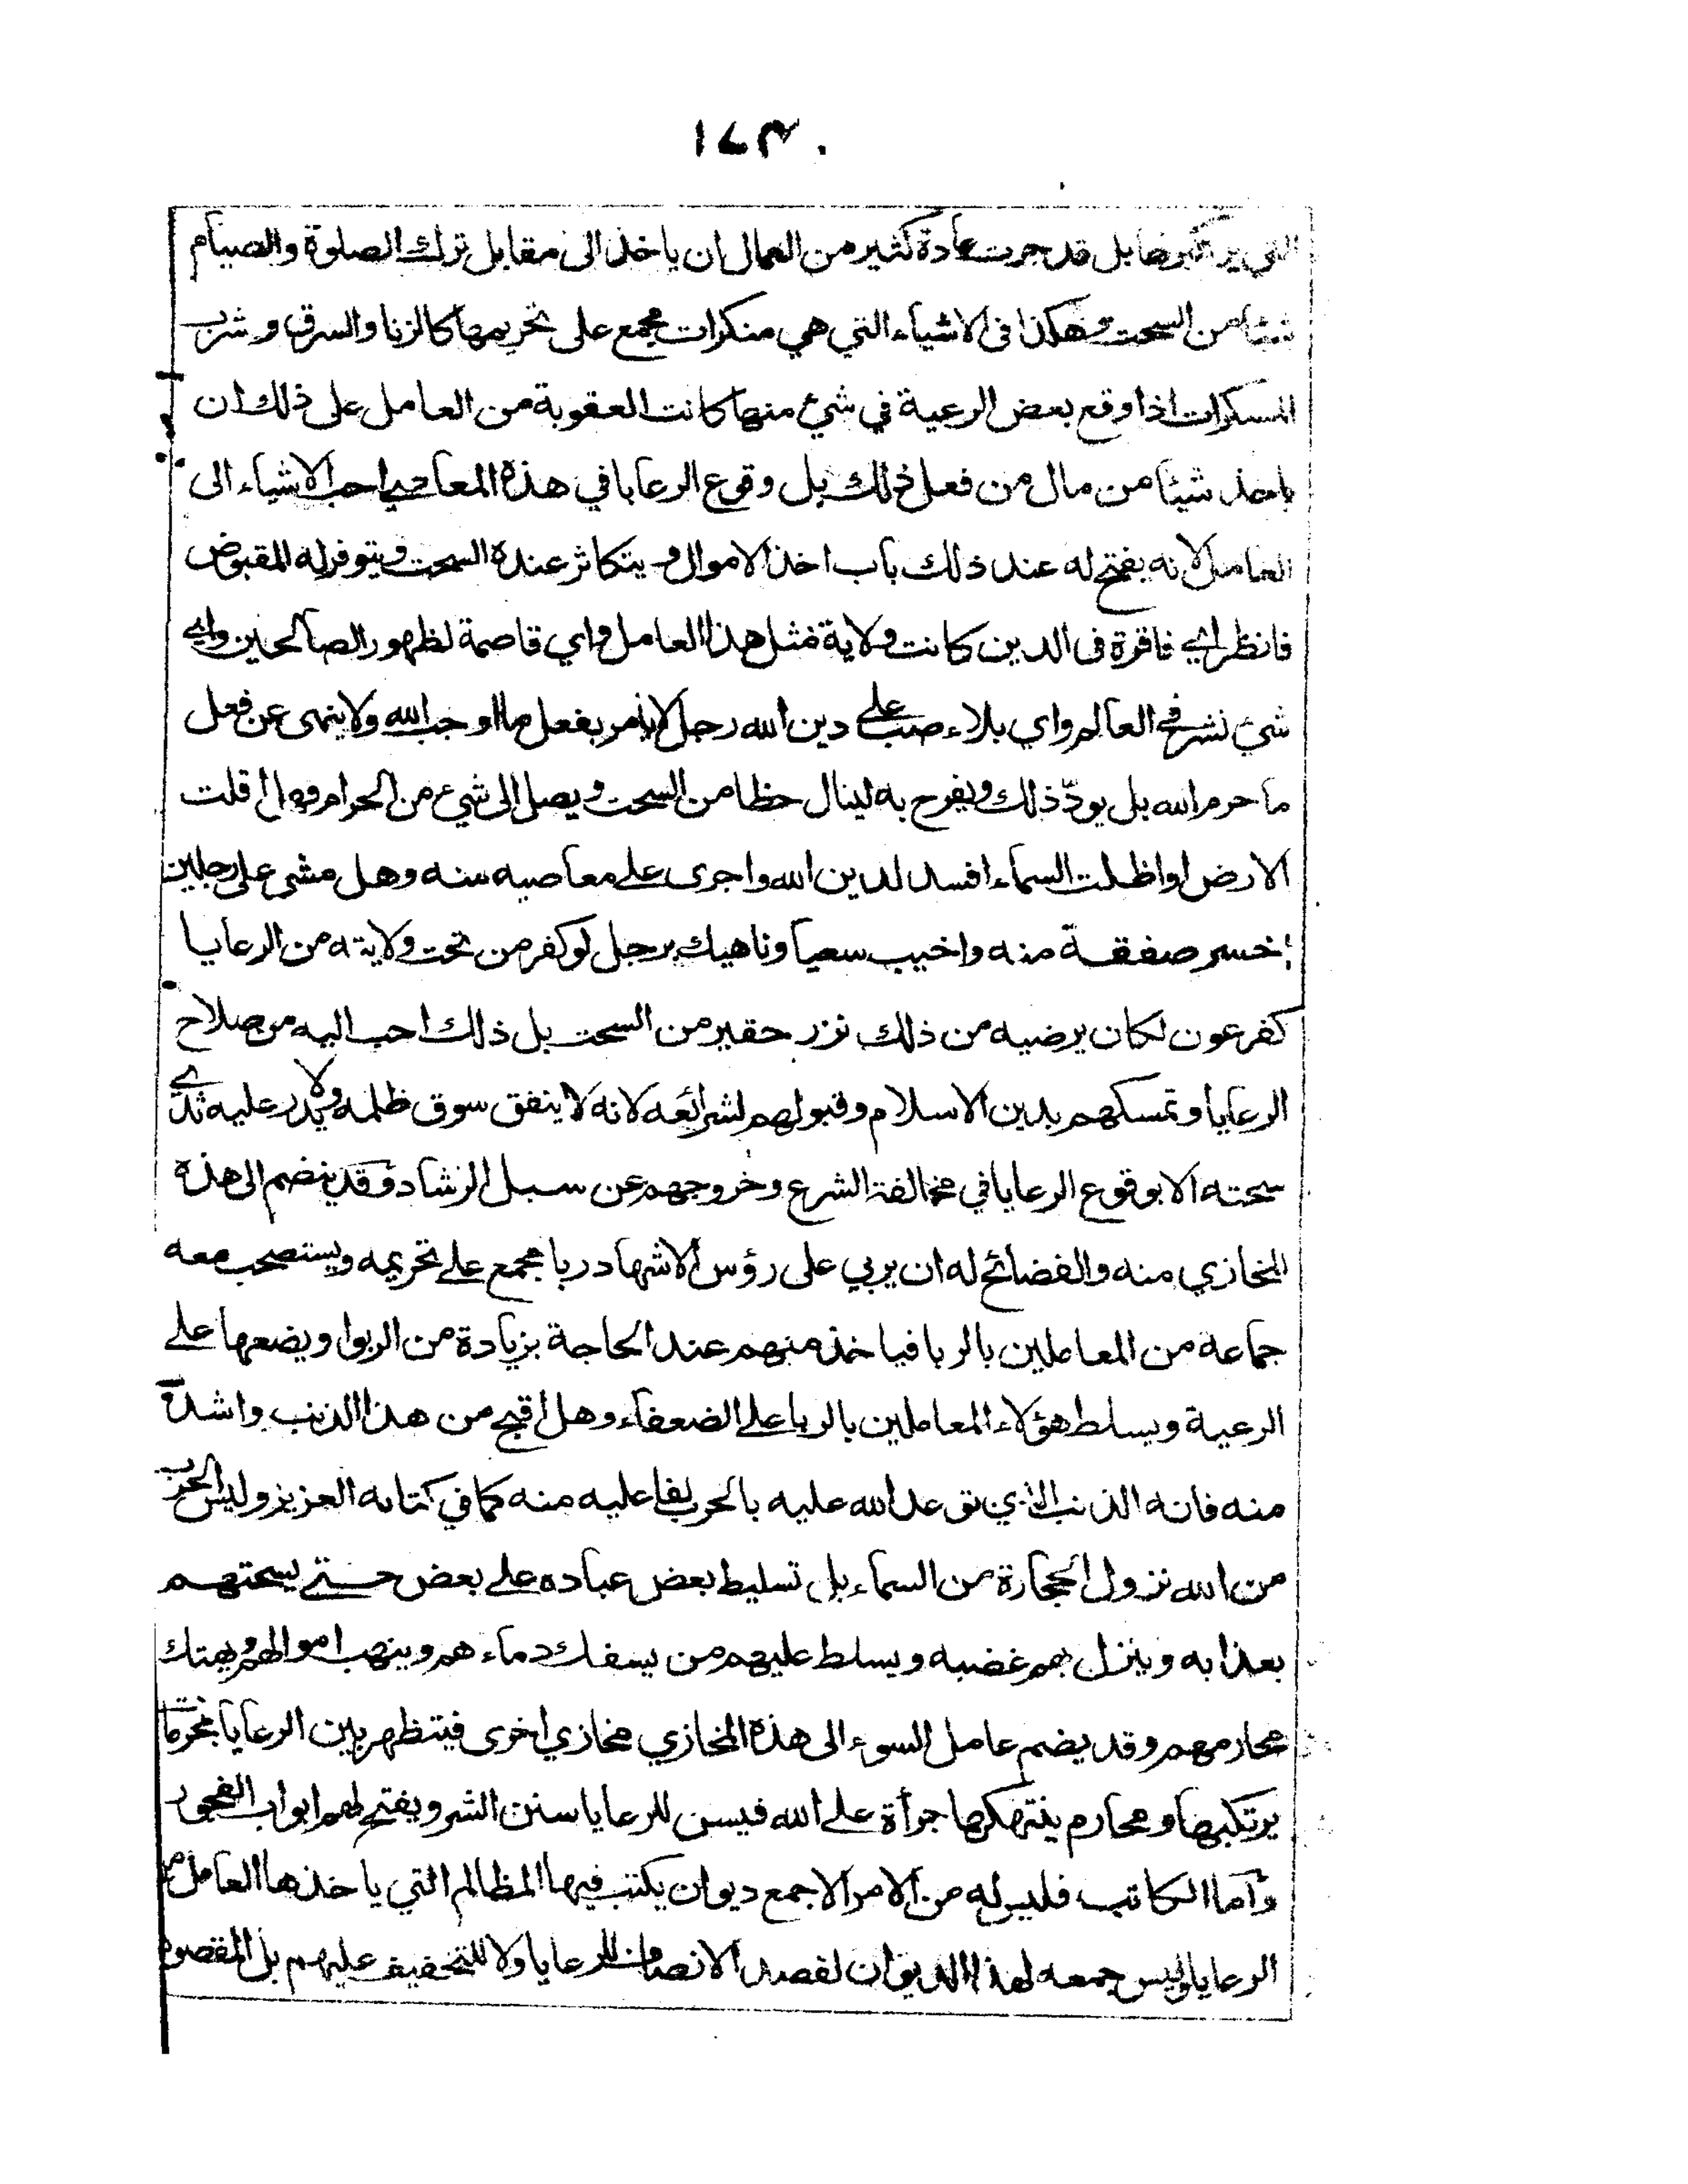 ١٤٣٠
التي يرتكبوها بل قد جرت عادة كثير من العمال ان ياخذ الى مقابل ترك الصلوة والصيام
شيئا من السحت وهكذا فى الاشياء التي هي منكرات مجمع على تحريمها كالزنا والسرق وشرب
المسكرات اذا وقع بعض الرعية في شئ منها كانت العقوبة من العامل على ذلك ان
ياخذ شيئا من مال من فعل ذلك بل وقوع الرعايا في هذه المعاصي احب الاشياء الى
العامل لانه يفتح له عند ذلك باب اخذ الاموال ويتكاثر عنده السحت ويتوفر له المقبوض
فانظر اي فاقرة فى الدين كانت ولاية مثل هذا العامل واي قاصمة لظهور الصالحين واي
شئ نشر في العالم واي بلاء صب على دين الله رجل لا يأمر بفعل ما اوجب الله ولا ينهى عن فعل
ما حرم الله بل يودّ ذلك ويفرح به لينال حظا من السحت ويصل الى شيء من الحرام وهل اقلت
الارض او اظلت السماء افسد لدين الله واجرى على معاصيه منه وهل مشى على رجلين
اخسر صفقة منه واخيب سعيا وناهيك برجل لو كفر من تحت ولايته من الرعايا
كفر عون لكان يرضيه من ذلك نزر حقير من السحت بل ذلك احب اليه من صلاح
الرعايا وتمسكهم بدين الاسلام وقبولهم لشرائعه لانه لا ينفق سوق ظلمه ولا يدر عليه ثدي
سحته الا بوقوع الرعايا في مخالفة الشرع وخروجهم عن سبل الرشاد وقد ينضم الى هذه
المخازي منه والفضائح له ان يربي على رؤس الاشهاد ربا مجمع على تحريمه ويستصحب معه
جماعة من المعاملين بالربا فياخذ منهم عند الحاجة بزيادة من الربوا ويضعها على
الرعية ويسلط هؤلاء المعاملين بالربا على الضعفاء وهل اقبح من هذا الذنب واشد
منه فانه الذنب الذي توعد الله عليه بالحرب لفاعليه منه كما في كتابه العزيز وليس الحرب
من الله نزول الحجارة من السماء بل تسليط بعض عباده على بعض حتى يسحتهم
بعذابه وينزل بهم غضبه ويسلط عليهم من يسفك دماءهم وينهب اموالهم ويهتك
محارمهم وقد يضم عامل السوء الى هذه المخازي مخازي اخرى فيتظهر بين الرعايا بمحرمات
يرتكبها ومحارم ينتهكها جرأة على الله فيسن للرعايا سنن الشر ويفتح لهم ابواب الفجور
وأما الكاتب فليس له من الامر الا جمع ديوان يكتب فيها المظالم التي ياخذها العامل من
الرعايا وليس جمعه لهذا الديوان لقصد الانصاف للرعايا ولا للتخفيف عليهم بل المقصود